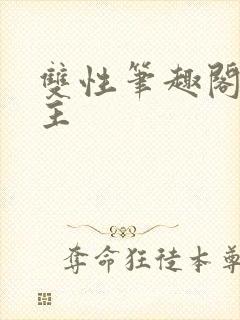 雙性筆趣閣
主
夺命狂徒本尊